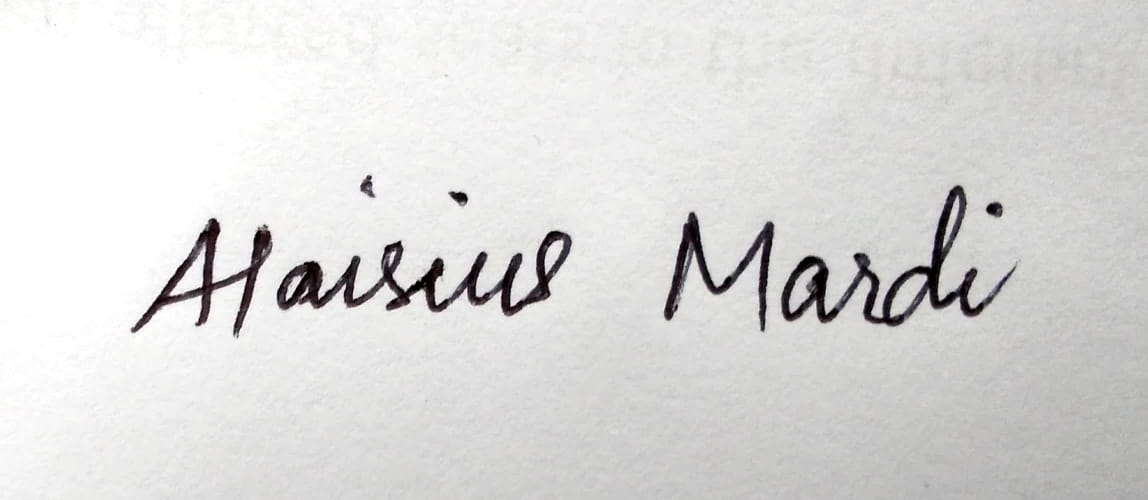 Alaisius Mardi